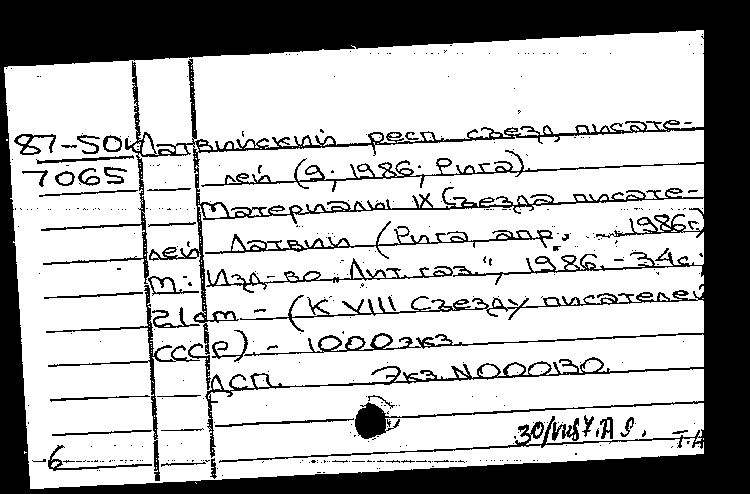 87-50к Латвийский респ. съезд писате-
7065 лей (9; 1986; Рига).
Материалы IX Съезда писате-
лей Латвии (Рига, апр. 1986г)
М.: Изд-во „Лит. газ.", 1986. - 34с.;
21см. - (К VIII Съезду писателей
СССР). - 1000экз.
ДСП. Экз. N000130.
6 Т.А